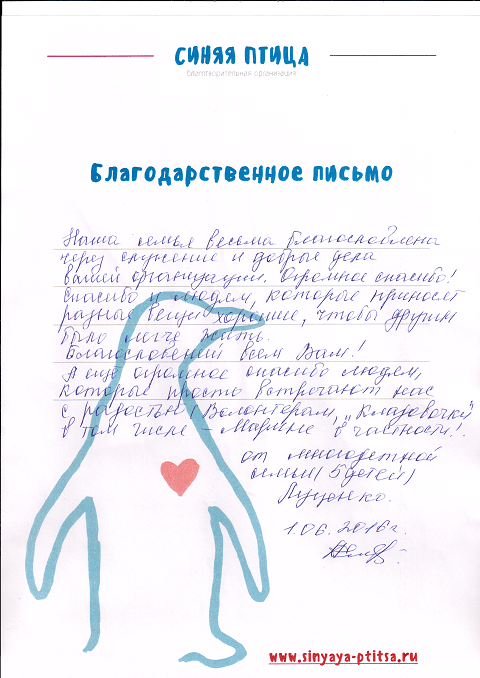 СИНЯЯ ПТИЦА
благотворительная организация
Благодарственное письмо
Наша семья весьма благословлена
через служение и добрые дела
вашей организации. Огромное спасибо!
Спасибо и людям, которые приносят
разные вещи хорошие, чтобы другим
было легче жить.
Благословений всем Вам!
А ещё огромное спасибо людям,
которые просто встречают нас
с радостью (Волонтёрам, „Кладовочки"
в том числе - Марине в частности!.
от многодетной
семьи (5 детей)
Луценко.
1.06.2016г.
www.sinyaya-ptitsa.ru